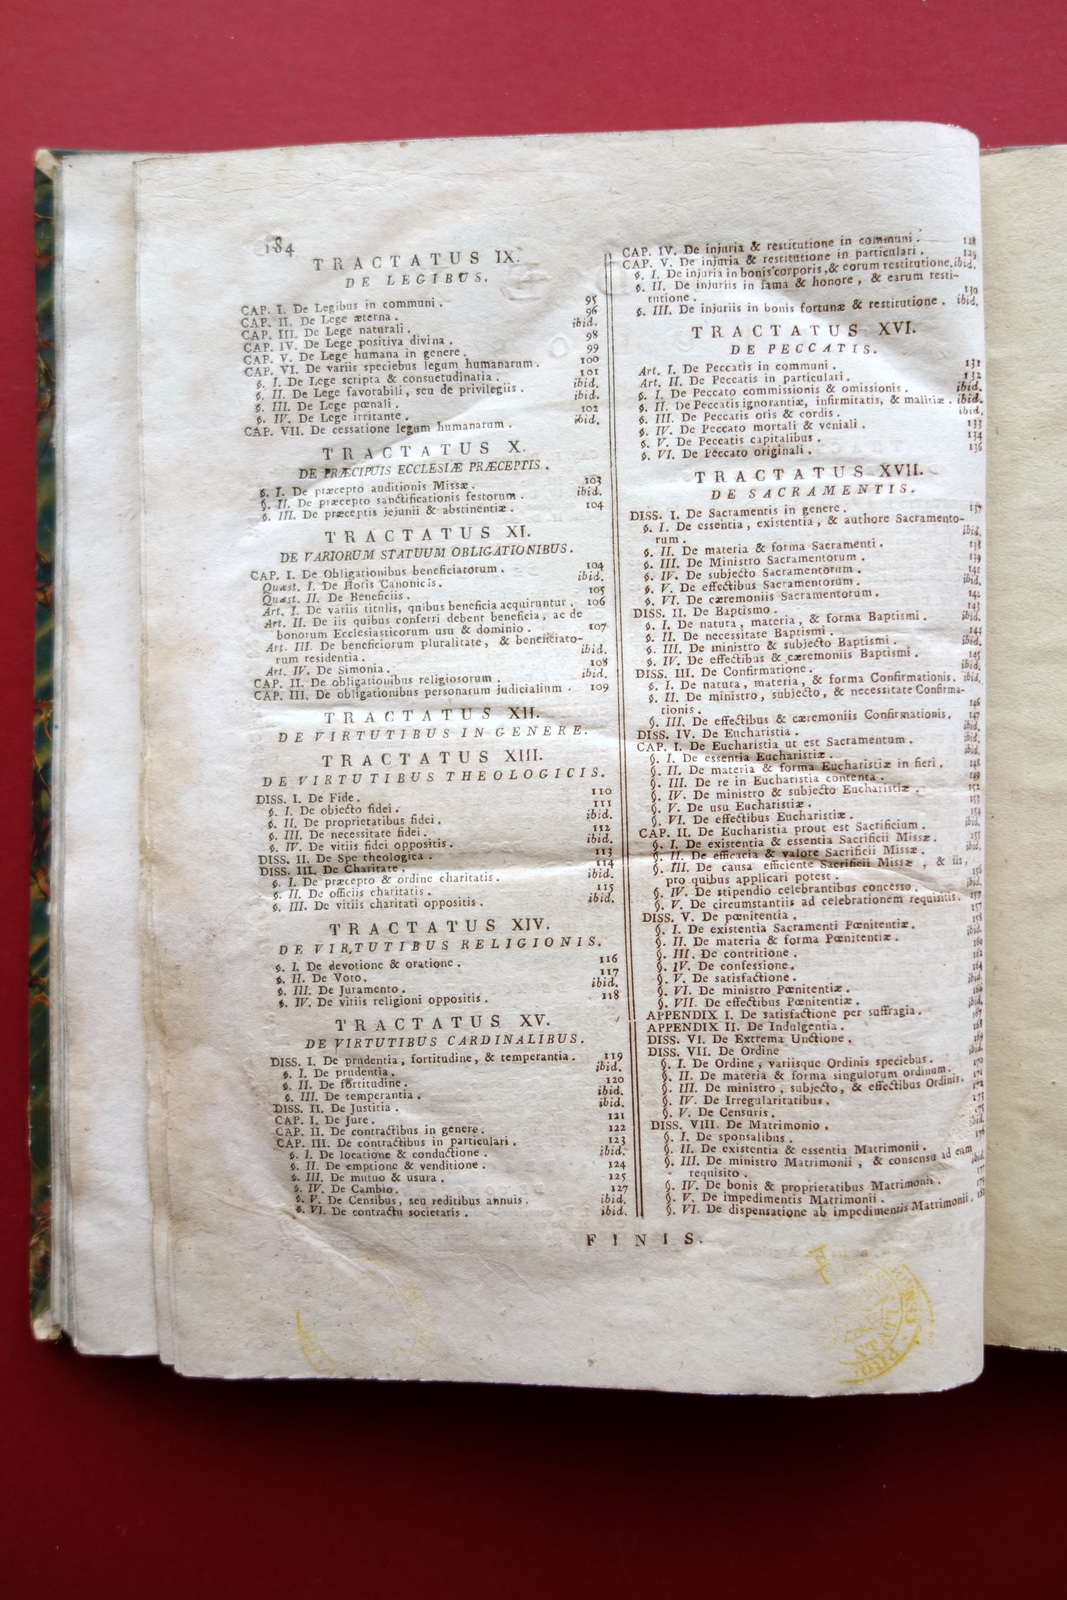 184
TRACTATUS IX.
DE LEGIBUS.
CAP. I. De Legibus in communi. 95
CAP. II. De Lege æterna. 96
CAP. III. De Lege naturali. ibid.
CAP. IV. De Lege positiva divina. 98
CAP. V. De Lege humana in genere. 99
CAP. VI. De variis speciebus legum humanarum. 100
§. I. De Lege scripta & consuetudinaria. 101
§. II. De Lege favorabili, seu de privilegiis. ibid.
§. III. De Lege pœnali. ibid.
§. IV. De Lege irritante. 102
CAP. VII. De cessatione legum humanarum. ibid.
TRACTATUS X.
DE PRÆCIPUIS ECCLESIÆ PRÆCEPTIS.
§. I. De præcepto auditionis Missæ. 103
§. II. De præcepto sanctificationis festorum. ibid.
§. III. De præceptis jejunii & abstinentiæ. 104
TRACTATUS XI.
DE VARIORUM STATUUM OBLIGATIONIBUS.
CAP. I. De Obligationibus beneficiatorum. 104
Quæst. I. De Horis Canonicis. ibid.
Quæst. II. De Beneficiis. 105
Art. I. De variis titulis, quibus beneficia acquiruntur. 106
Art. II. De iis quibus conferri debent beneficia, ac de
bonorum Ecclesiasticorum usu & dominio. 107
Art. III. De beneficiorum pluralitate, & beneficiato-
rum residentia. ibid.
Art. IV. De Simonia. 108
CAP. II. De obligationibus religiosorum. ibid.
CAP. III. De obligationibus personarum judicialium. 109
TRACTATUS XII.
DE VIRTUTIBUS IN GENERE.
TRACTATUS XIII.
DE VIRTUTIBUS THEOLOGICIS.
DISS. I. De Fide. 110
§. I. De objecto fidei. 111
§. II. De proprietatibus fidei. ibid.
§. III. De necessitate fidei. 112
§. IV. De vitiis fidei oppositis. ibid.
DISS. II. De Spe theologica. 113
DISS. III. De Charitate. 114
§. I. De præcepto & ordine charitatis. ibid.
§. II. De officiis charitatis. 115
§. III. De vitiis charitati oppositis. ibid.
TRACTATUS XIV.
DE VIRTUTIBUS RELIGIONIS.
§. I. De devotione & oratione. 116
§. II. De Voto. 117
§. III. De Juramento. ibid.
§. IV. De vitiis religioni oppositis. 118
TRACTATUS XV.
DE VIRTUTIBUS CARDINALIBUS.
DISS. I. De prudentia, fortitudine, & temperantia. 119
§. I. De prudentia. ibid.
§. II. De fortitudine. 120
§. III. De temperantia. ibid.
DISS. II. De Justitia. ibid.
CAP. I. De Jure. 121
CAP. II. De contractibus in genere. 122
CAP. III. De contractibus in particulari. 123
§. I. De locatione & conductione. ibid.
§. II. De emptione & venditione. 124
§. III. De mutuo & usura. 125
§. IV. De Cambio. 127
§. V. De Censibus, seu reditibus annuis. ibid.
§. VI. De contractu societatis. ibid.
CAP. IV. De injuria & restitutione in communi. 128
CAP. V. De injuria & restitutione in particulari. 129
§. I. De injuria in bonis corporis, & eorum restitutione. ibid.
§. II. De injuriis in fama & honore, & earum resti-
tutione. 130
§. III. De injuriis in bonis fortunæ & restitutione. ibid.
TRACTATUS XVI.
DE PECCATIS.
Art. I. De Peccatis in communi. 131
Art. II. De Peccatis in particulari. 132
§. I. De Peccato commissionis & omissionis. ibid.
§. II. De Peccatis ignorantiæ, infirmitatis, & malitiæ. ibid.
§. III. De Peccatis oris & cordis. ibid.
§. IV. De Peccato mortali & veniali. 133
§. V. De Peccatis capitalibus. 134
§. VI. De Peccato originali. 136
TRACTATUS XVII.
DE SACRAMENTIS.
DISS. I. De Sacramentis in genere. 137
§. I. De essentia, existentia, & authore Sacramento-
rum. ibid.
§. II. De materia & forma Sacramenti. 138
§. III. De Ministro Sacramentorum. 139
§. IV. De subjecto Sacramentorum. 141
§. V. De effectibus Sacramentorum. ibid.
§. VI. De cæremoniis Sacramentorum. 142
DISS. II. De Baptismo. 143
§. I. De natura, materia, & forma Baptismi. ibid.
§. II. De necessitate Baptismi. 144
§. III. De ministro & subjecto Baptismi. ibid.
§. IV. De effectibus & cæremoniis Baptismi. 145
DISS. III. De Confirmatione. ibid.
§. I. De natura, materia, & forma Confirmationis. ibid.
§. II. De ministro, subjecto, & necessitate Confirma-
tionis. 146
§. III. De effectibus & cæremoniis Confirmationis. 147
DISS. IV. De Eucharistia. ibid.
CAP. I. De Eucharistia ut est Sacramentum. ibid.
§. I. De essentia Eucharistiæ. ibid.
§. II. De materia & forma Eucharistiæ in fieri. 148
§. III. De re in Eucharistia contenta. 149
§. IV. De ministro & subjecto Eucharistiæ. 152
§. V. De usu Eucharistiæ.
§. VI. De effectibus Eucharistiæ. 154
CAP. II. De Eucharistia prout est Sacrificium. ibid.
§. I. De existentia & essentia Sacrificii Missæ. 155
§. II. De efficacia & valore Sacrificii Missæ. ibid.
§. III. De causa efficiente Sacrificii Missæ, & iis,
pro quibus applicari potest. 156
§. IV. De stipendio celebrantibus concesso. ibid.
§. V. De circumstantiis ad celebrationem requisitis. 157
DISS. V. De pœnitentia. 157
§. I. De existentia Sacramenti Pœnitentiæ. 158
§. II. De materia & forma Pœnitentiæ. ibid.
§. III. De contritione. 160
§. IV. De confessione. 162
§. V. De satisfactione. 164
§. VI. De ministro Pœnitentiæ. ibid.
§. VII. De effectibus Pœnitentiæ. 166
APPENDIX I. De satisfactione per suffragia. 167
APPENDIX II. De Indulgentia. 168
DISS. VI. De Extrema Unctione. 169
DISS. VII. De Ordine ibid.
§. I. De Ordine, variisque Ordinis speciebus. 170
§. II. De materia & forma singulorum ordinum. 171
§. III. De ministro, subjecto, & effectibus Ordinis. 172
§. IV. De Irregularitatibus. 173
§. V. De Censuris. 175
DISS. VIII. De Matrimonio. ibid.
§. I. De sponsalibus. 176
§. II. De existentia & essentia Matrimonii.
§. III. De ministro Matrimonii, & consensu ad eum
requisito. ibid.
§. IV. De bonis & proprietatibus Matrimonii.
§. V. De impedimentis Matrimonii.
§. VI. De dispensatione ab impedimentis Matrimonii.
FINIS.